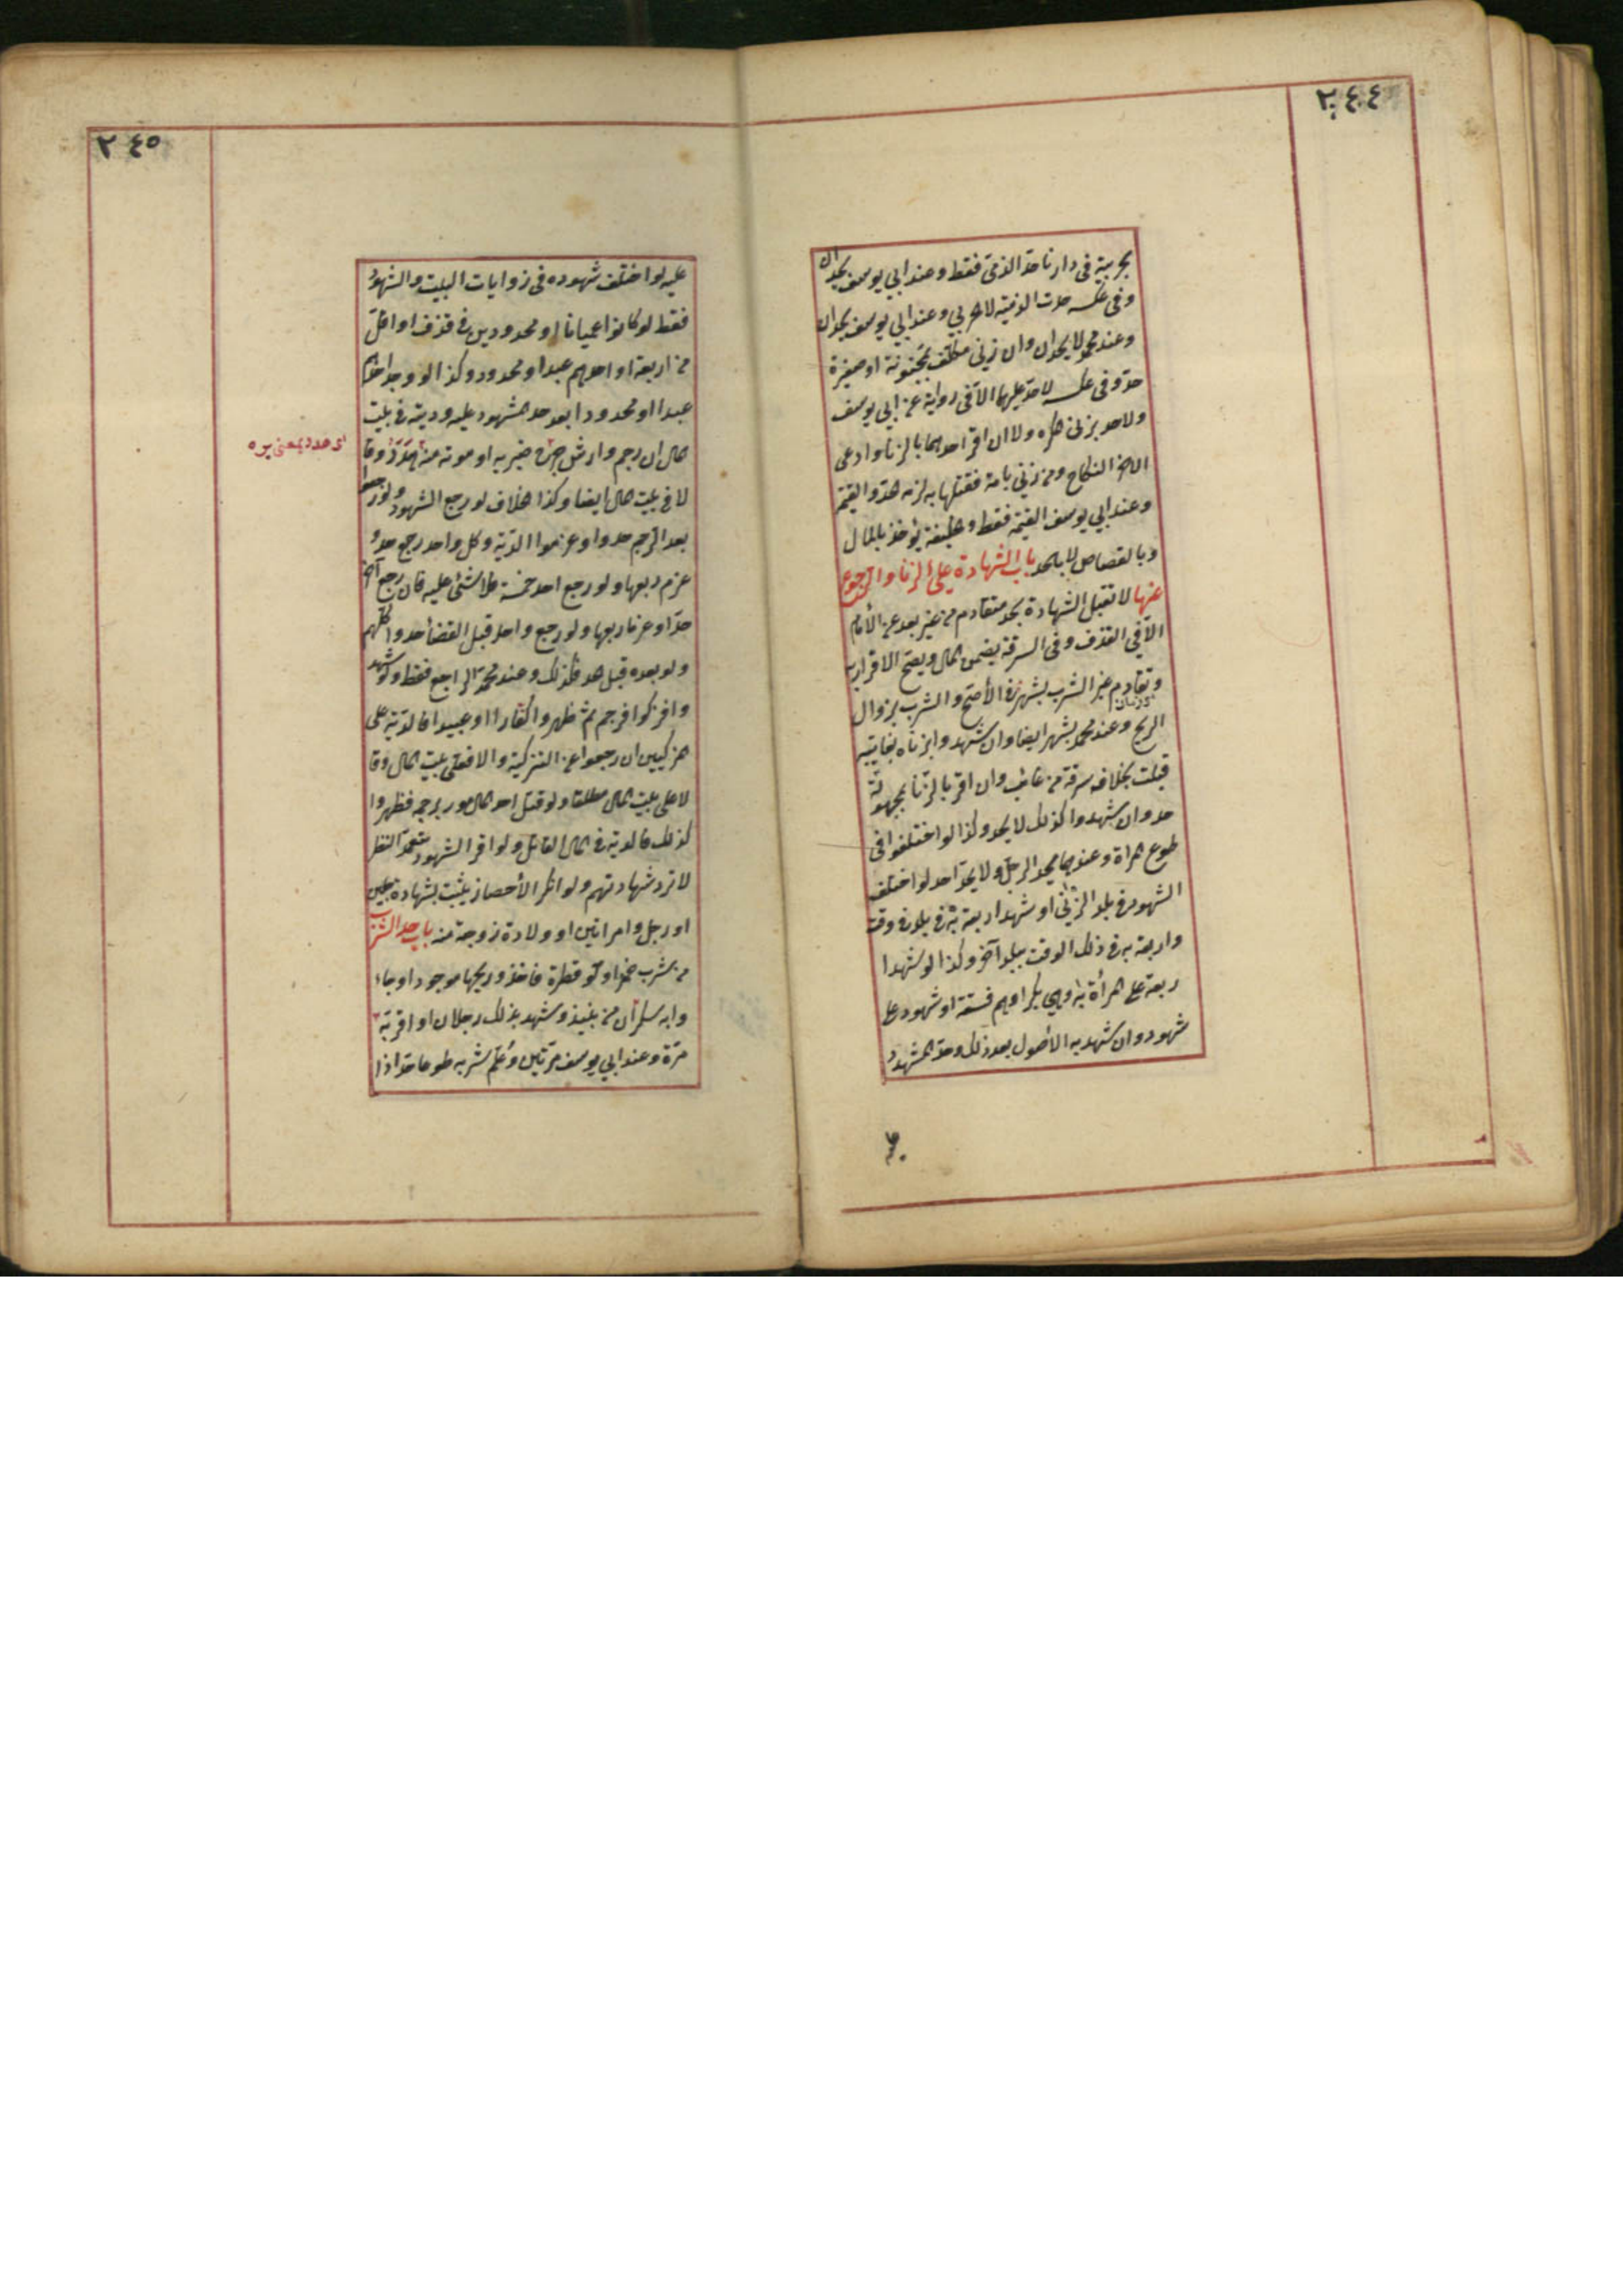 ٢٤٤
بحربية في دارنا حدّ الذمّي فقط وعند ابي يوسف يحدان
وفي عكسه حدت الذمّية لا الحربي وعند ابي يوسف يحدان
وعند محمد لا يحدان وان زنى مكلّف بمجنونة او صغيرة
حدّ وفي عكسه لا حدّ عليهما الّا في رواية عن ابي يوسف
ولا حد بزنى المكره ولا ان اقرّ احدهما بالزنا وادعى
الاخر النكاح ومن زنى بامة فقتلها به لزمه الحدّ والقيمة
وعند ابي يوسف القيمة فقط والخليفة يؤخذ بالمال
وبالقصاص لا بالحد باب الشهادة على الزنا والرجوع
عنها لا تقبل الشهادة بحد متقادم من غير بعد عن الأمام
الّا في القذف وفي السرقة يضمن المال ويصحّ الاقرار به
وتقادم غير الشرب بشهر في الأصحّ والشرب بزوال
الريح وعند محمد بشهر ايضا وان شهدوا بزناه بغايبة
قبلت بخلاف سرقة من غائب وان اقر بالزنا بمجهولة
حد وان شهدوا كذلك لا يحد وكذا لو اختلفوا في
طوع المراة وعندهما يحد الرجل ولا يحدّ احد لو اختلف
الشهود في بلد الزنى او شهد اربعة به في بلد في وقت
واربعة به في ذلك الوقت ببلد آخر وكذا لو شهد ا
ربعة على امرأة به وهي بكر او هم فسقة او شهود على
شهود وان شهد به الأصول بعد ذلك وحدّ المشهود
٢٤٥
عليه لو اختلف شهوده في زوايات البيت والشهود
فقط لو كانوا عميانا او محدودين في قذف او اقلّ
من اربعة او احدهم عبد او محدود وكذا لو وجد احدهم
عبدا او محدودا بعد حد المشهود عليه وديته في بيت
المال ان رجم وارش جرح ضربه او موته منه هدر وقا
لا في بيت المال ايضا وكذا الخلاف لو رجع الشهود ولو رجعوا
بعد الرجم حدوا وغرموا الدّية وكل واحد رجع حد و
غرم ربعها ولو رجع احد خمسة فلا شئ عليه فان رجع آخر
حدّا وغرما ربعها ولو رجع واحد قبل القضأ حدوا كلّهم
ولو بعده قبل الحد فكذلك وعند محمد الراجع فقط ولو شهد
وا فزكوا فرجم ثم ظهروا كفّارا او عبيدا فالدّية على
المزكيين ان رجعوا عن التزكية والا فعلى بيت المال وقا
لا على بيت المال مطلقا ولو قتل احد المأمور برجمه فظهروا
كذلك فالدية في مال القاتل ولو اقر الشهود بتعمّد النظر
لا ترد شهادتهم ولو انكر الأحصان يثبت بشهادة رجلين
او رجل وامراتين او ولادة زوجته منه باب حد الشرب
من شرب خمرا ولو قطرة فاخذ وريحها موجود او جاء
وا به سكران من نبيذ وشهد بذلك رجلان او اقر به
مرّة وعند ابي يوسف مرّتين وعلم شربه طوعا حدّ اذا